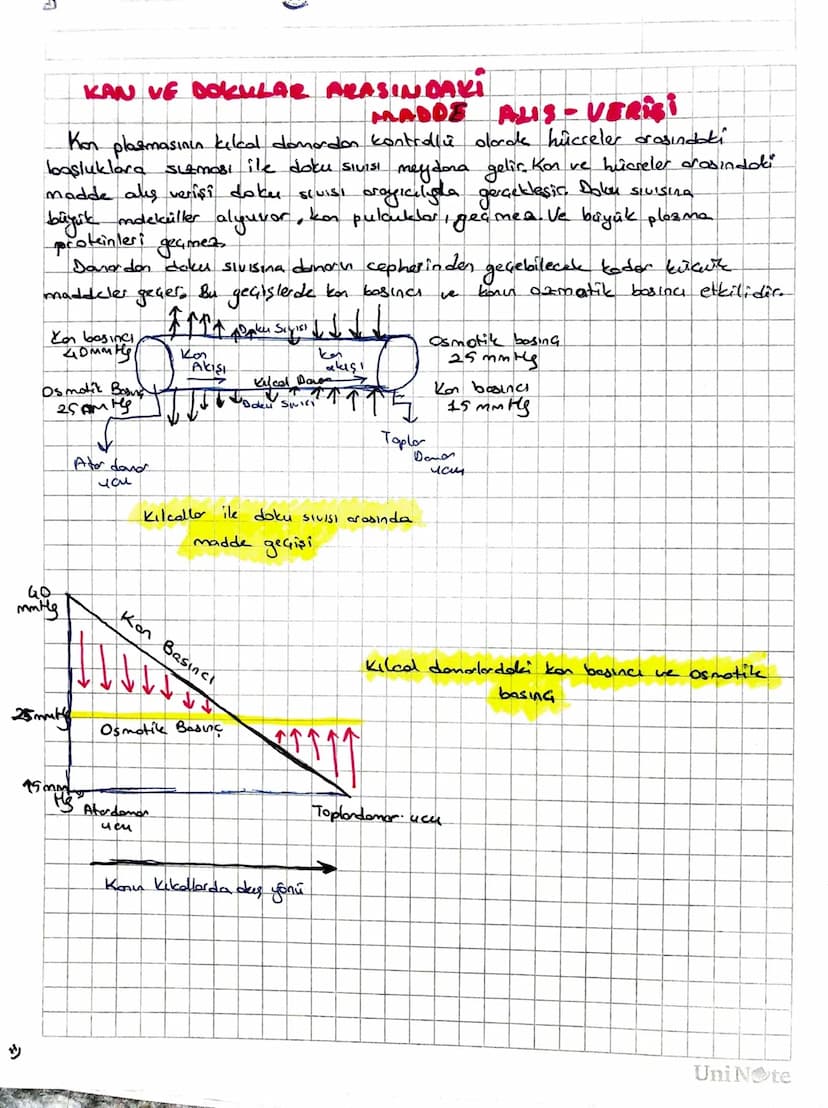 KAN VE DOKULAR ARASINDAKİ
MADDE ALIŞ-VERİŞİ
Kan plazmasının kılcal damardan kontrollü olarak hücreler arasındaki
boşluklara sızması ile doku sıvısı meydana gelir. Kan ve hücreler arasındaki
madde alış verişi doku sıvısı aracılığıyla gerçekleşir. Doku sıvısına
büyük moleküller, kan pulcukları, geçmez. Ve büyük plazma
proteinleri geçmez.
Damardan doku sıvısına damarın cepherinden geçebilecek kadar küçük
maddeler geçer. Bu geçişlerde kan basıncı ve kanın ozmatik basıncı etkilidir.
Kan basıncı
40 mmHg
Osmotik Basınç
25 mmHg
Doku Sıvısı
Kan Akışı
kan akışı
Kılcal Damar
Doku Sıvısı
Osmotik basınç
25 mmHg
Kan basıncı
15 mmHg
Atar damar
ucu
Toplar
Damar
ucu
Kılcallar ile doku sıvısı arasında
madde geçişi
40
mmHg
Kan Basıncı
Kılcal damarlardaki kan basıncı ve osmotik
basınç
25mmHg
Osmotik Basınç
15mm
Hg
Atardamar
ucu
Toplardamar ucu
Kanın Kılcallarda akış yönü
UniNote